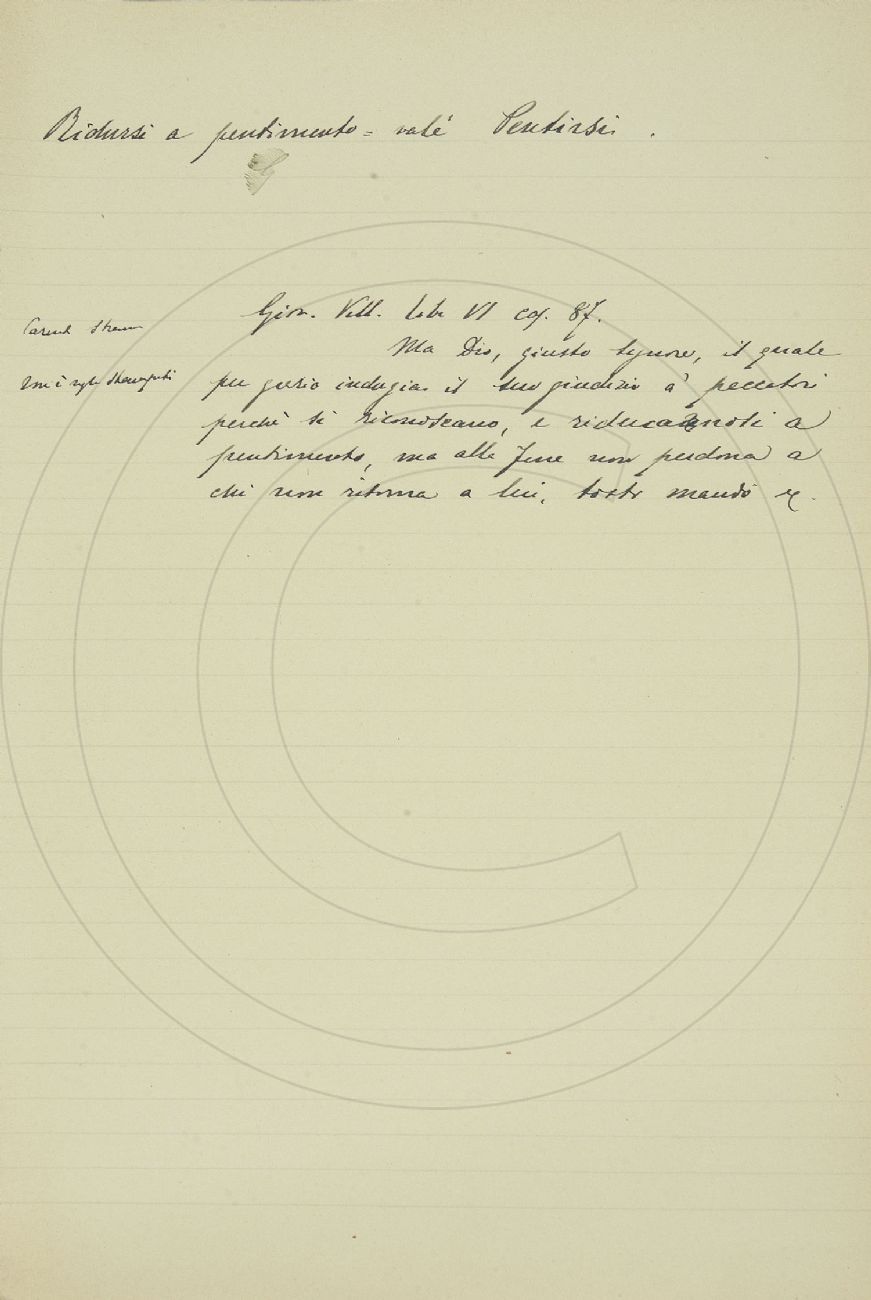 Ridursi a pentimento = vale Pentirsi.
Giov. Vill. Lib. VI cap. 87.
Ma Dio, giusto Signore, il quale
per grazia indugia il suo giudizio a' peccatori
perchè si riconoscano, e riducanosi a
pentimento, ma alla fine non perdona a
chi non ritorna a lui, tosto mandò ec.